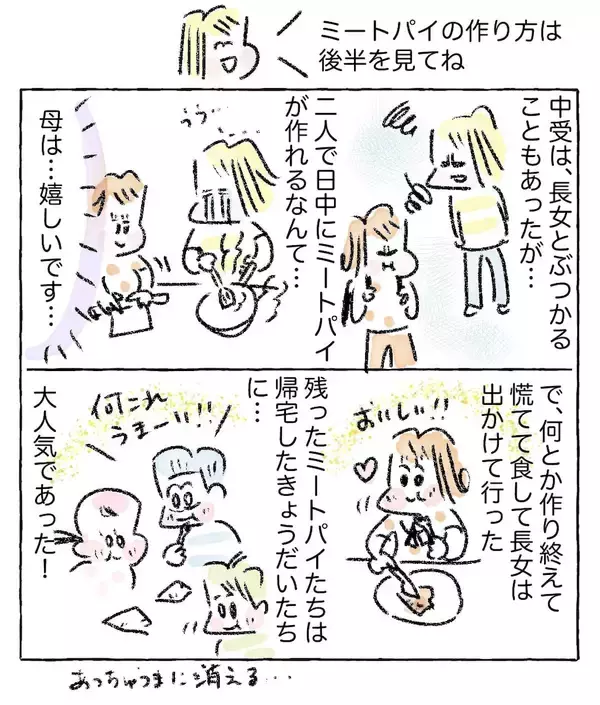 ミートパイの作り方は
後半を見てね
中受は、長女とぶつかる
こともあったが…
二人で日中にミートパイ
が作れるなんて…
うう…
母は…嬉しいです…
で、何とか作り終えて
慌てて食して長女は
出かけて行った
おいしい!!
残ったミートパイたちは
帰宅したきょうだいたち
に…
何これ
うまーい!!
大人気であった!
あっちゅうまに消える…